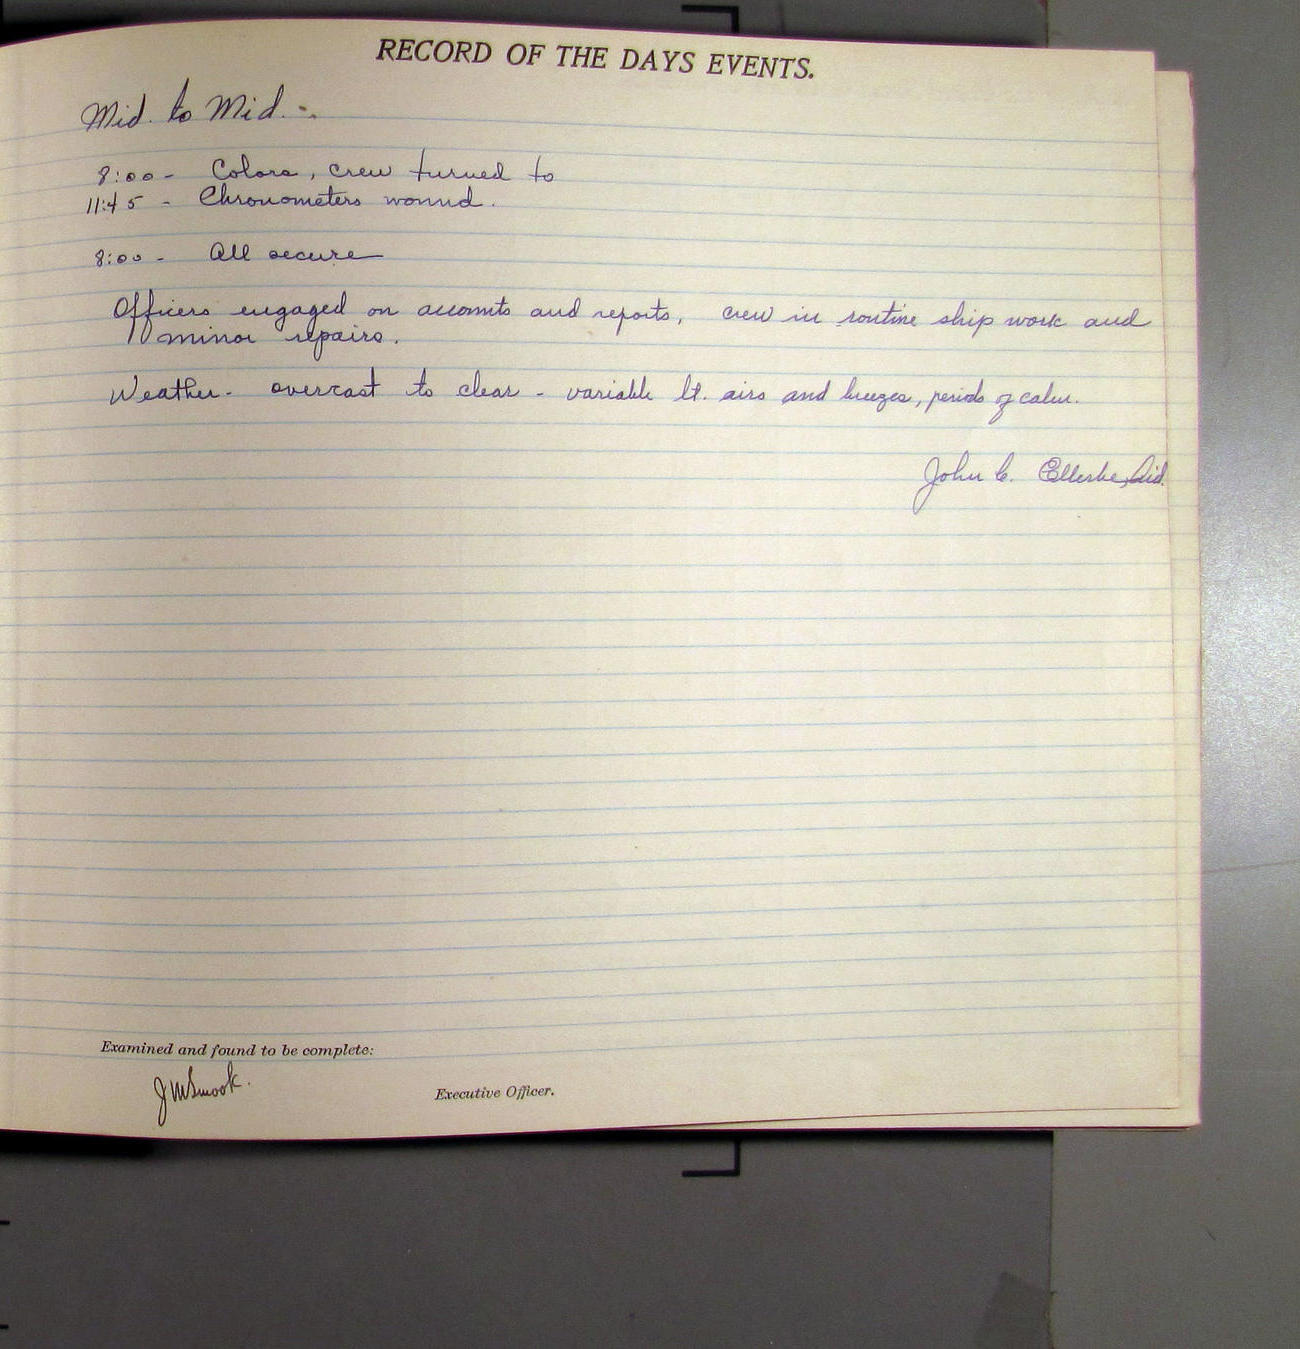 RECORD OF THE DAYS EVENTS.
Mid. to Mid. -.
8:00 - Colors, crew turned to
11:45 - Chronometers wound.
8:00 - All secure
Officers engaged on accounts and reports, crew in routine ship work and
minor repairs.
Weather - overcast to clear - variable lt. airs and breezes, periods of calm.
John C. Ellerbe, Aid.
Examined and found to be complete:
J M Smook.
Executive Officer.